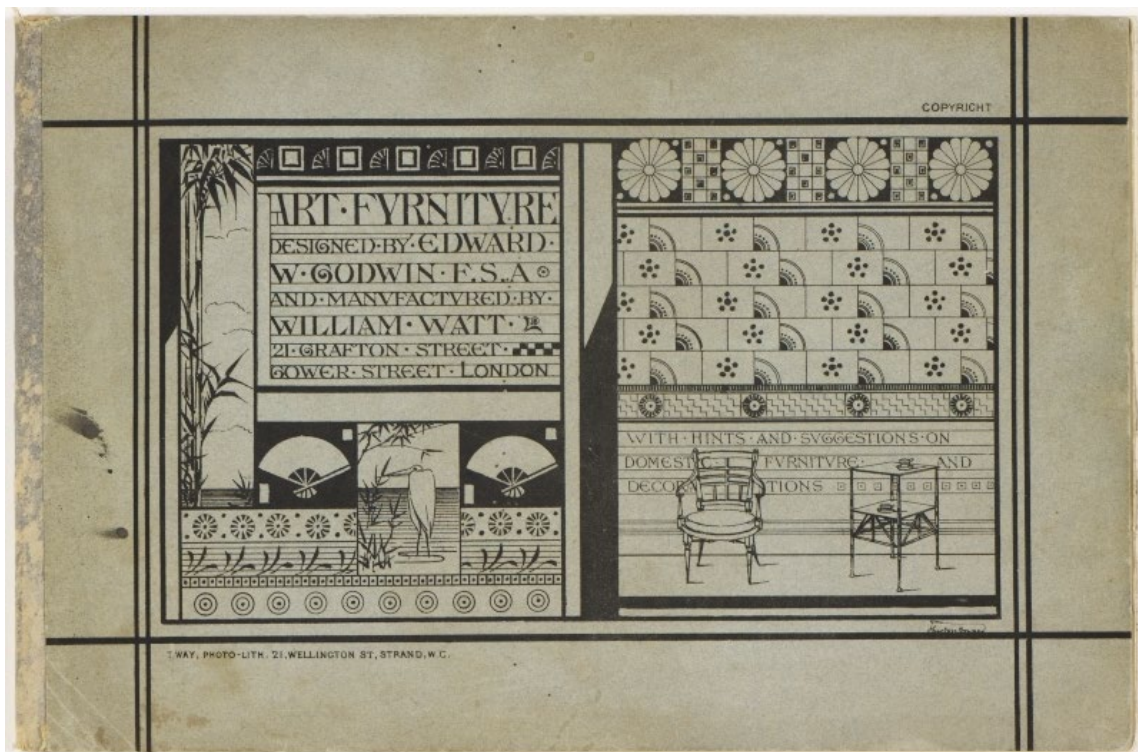 COPYRIGHT
ART·FVRNITVRE
DESIGNED·BY·EDWARD·
W·GODWIN·F.S.A
AND·MANVFACTVRED·BY·
WILLIAM·WATT·
21·GRAFTON·STREET·
GOWER·STREET·LONDON
WITH·HINTS·AND·SVGGESTIONS·ON
DOMESTIC FVRNITVRE· AND
DECORATIONS
T.WAY, PHOTO-LITH. 21, WELLINGTON ST, STRAND, W.C.